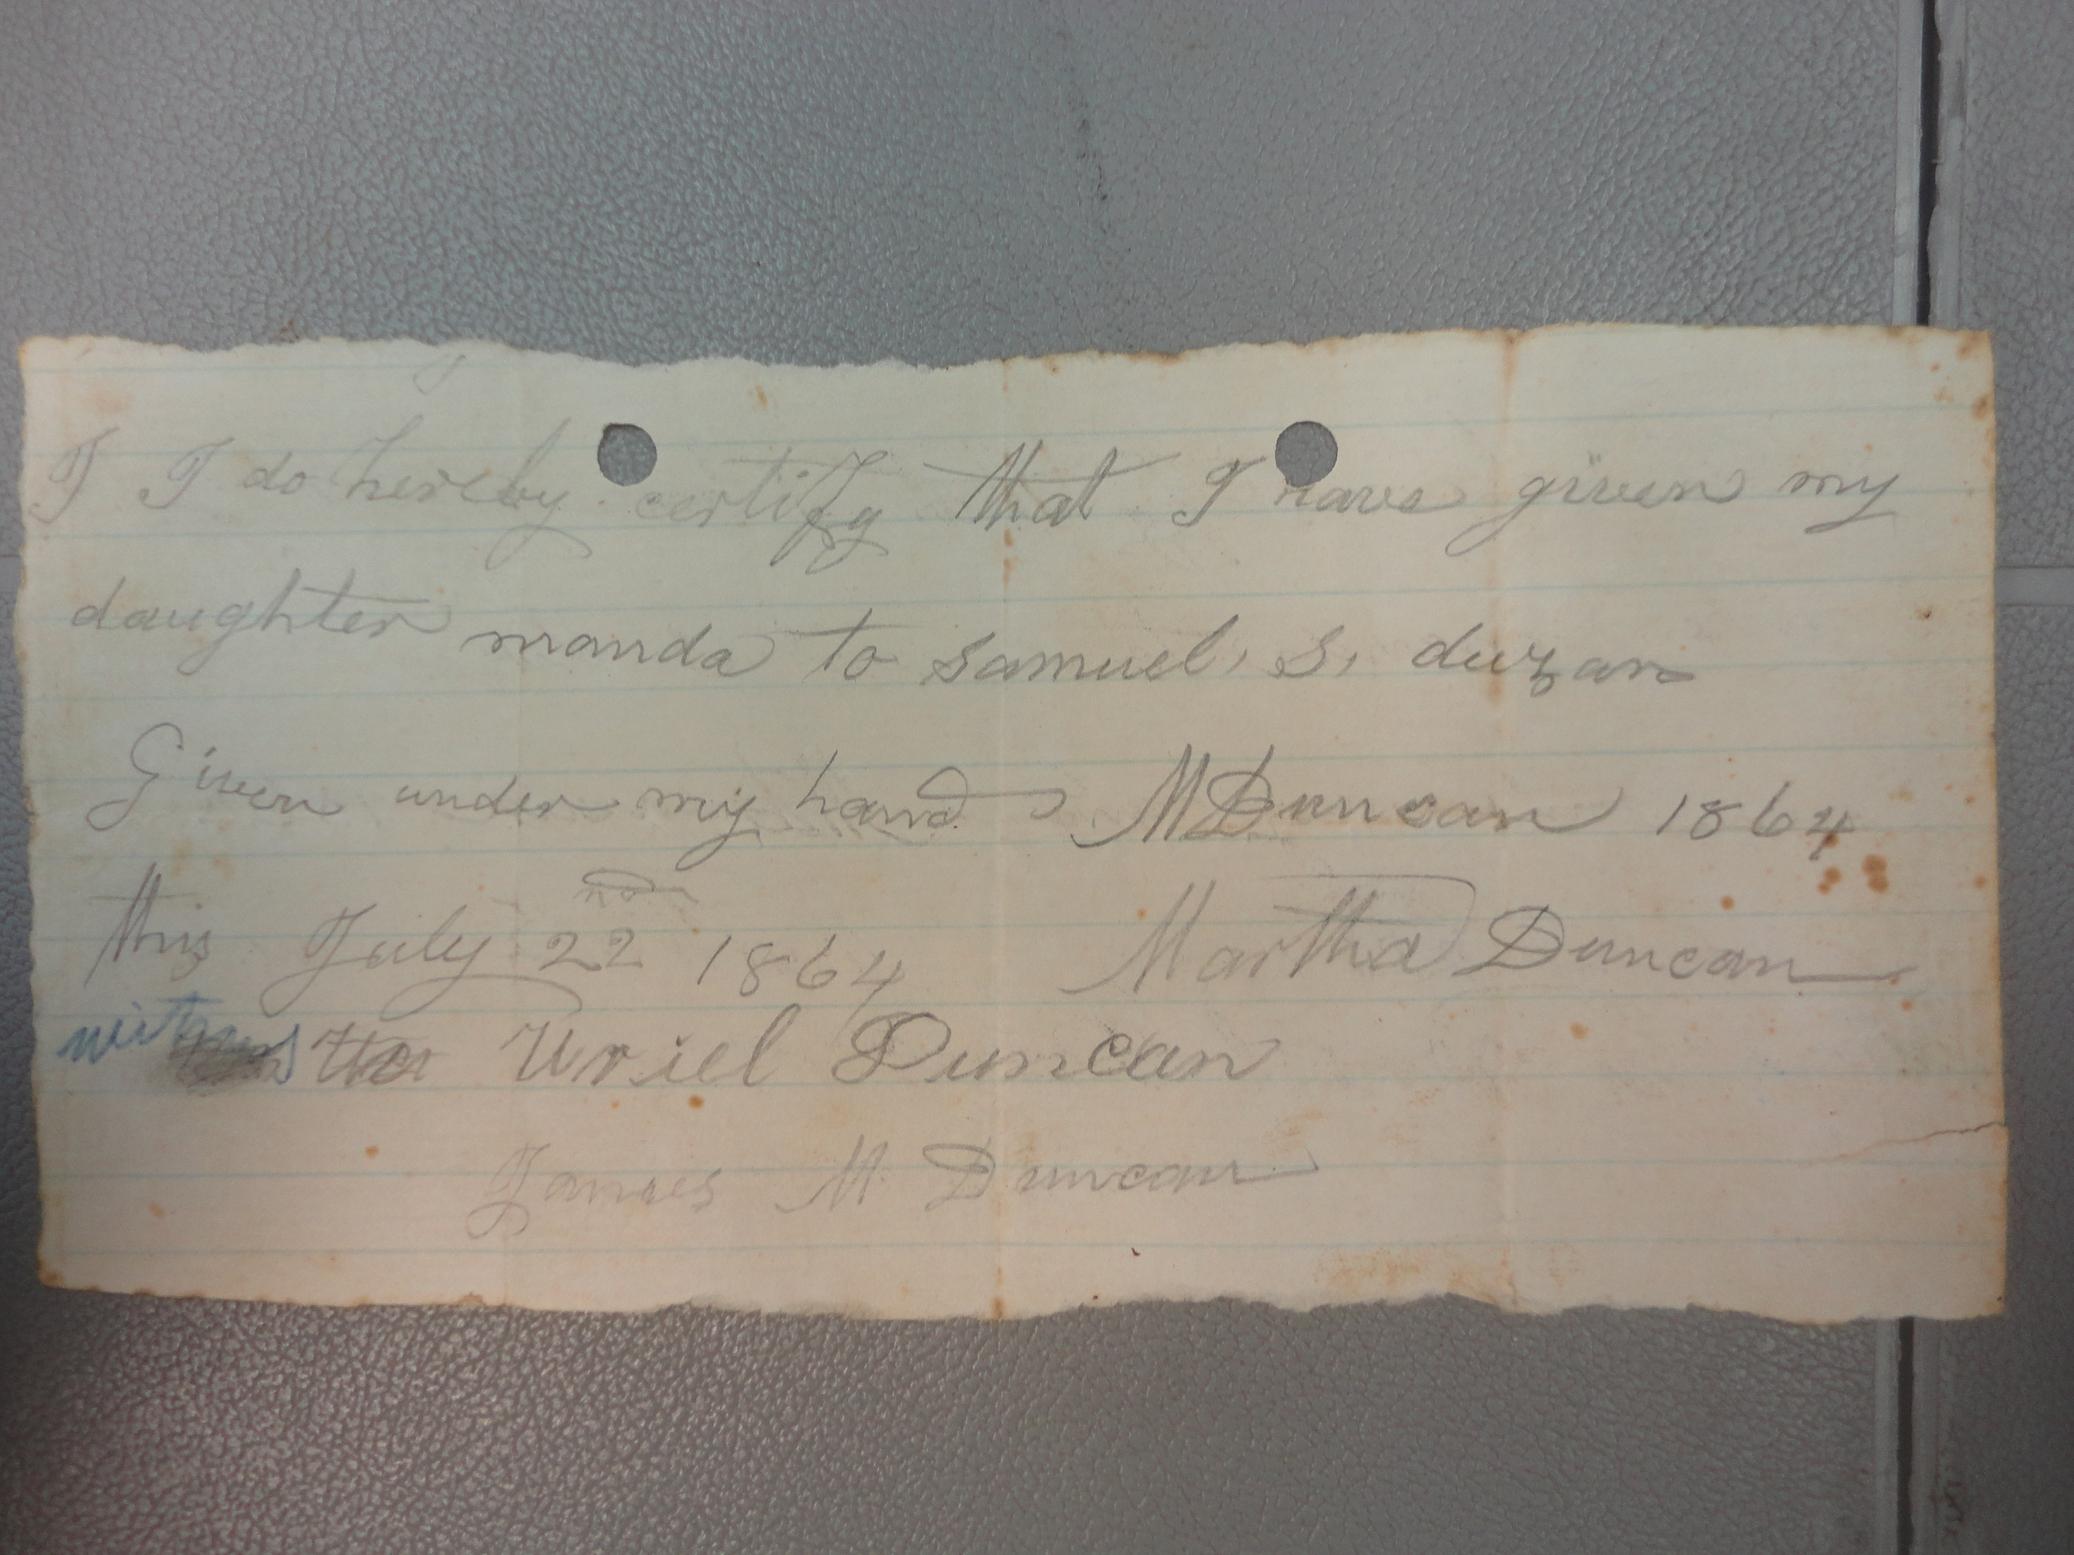 I I do hereby certify that I have given my
daughter manda to samuel, S, duzan
Given under my hand M Duncan 1864
this July 22 nd 1864 Martha Duncan
witness Uriel Duncan
James M Duncan